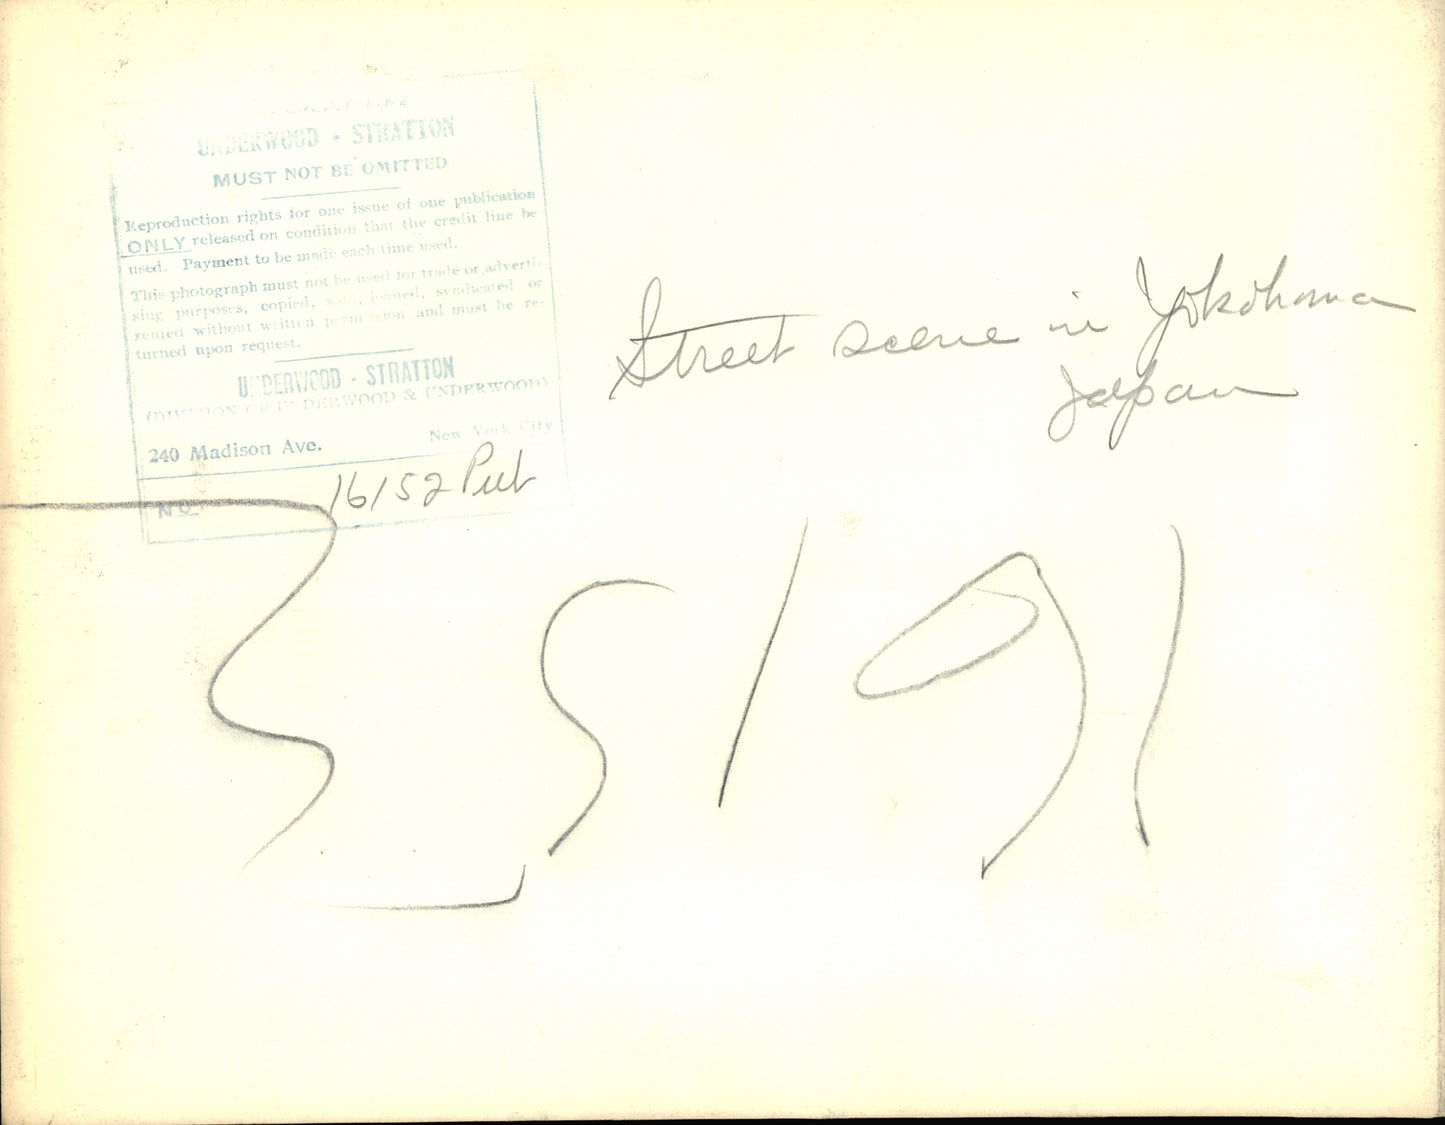 CREDIT LINE
UNDERWOOD - STRATTON
MUST NOT BE OMITTED
Reproduction rights for one issue of one publication
ONLY released on condition that the credit line be
used. Payment to be made each time used.
This photograph must not be used for trade or adverti-
sing purposes, copied, sold, loaned, syndicated or
rented without written permission and must be re-
turned upon request.
UNDERWOOD - STRATTON
(DIVISION OF UNDERWOOD & UNDERWOOD)
240 Madison Ave. New York City
NO. 16152
Street scene in Yokohama
Japan